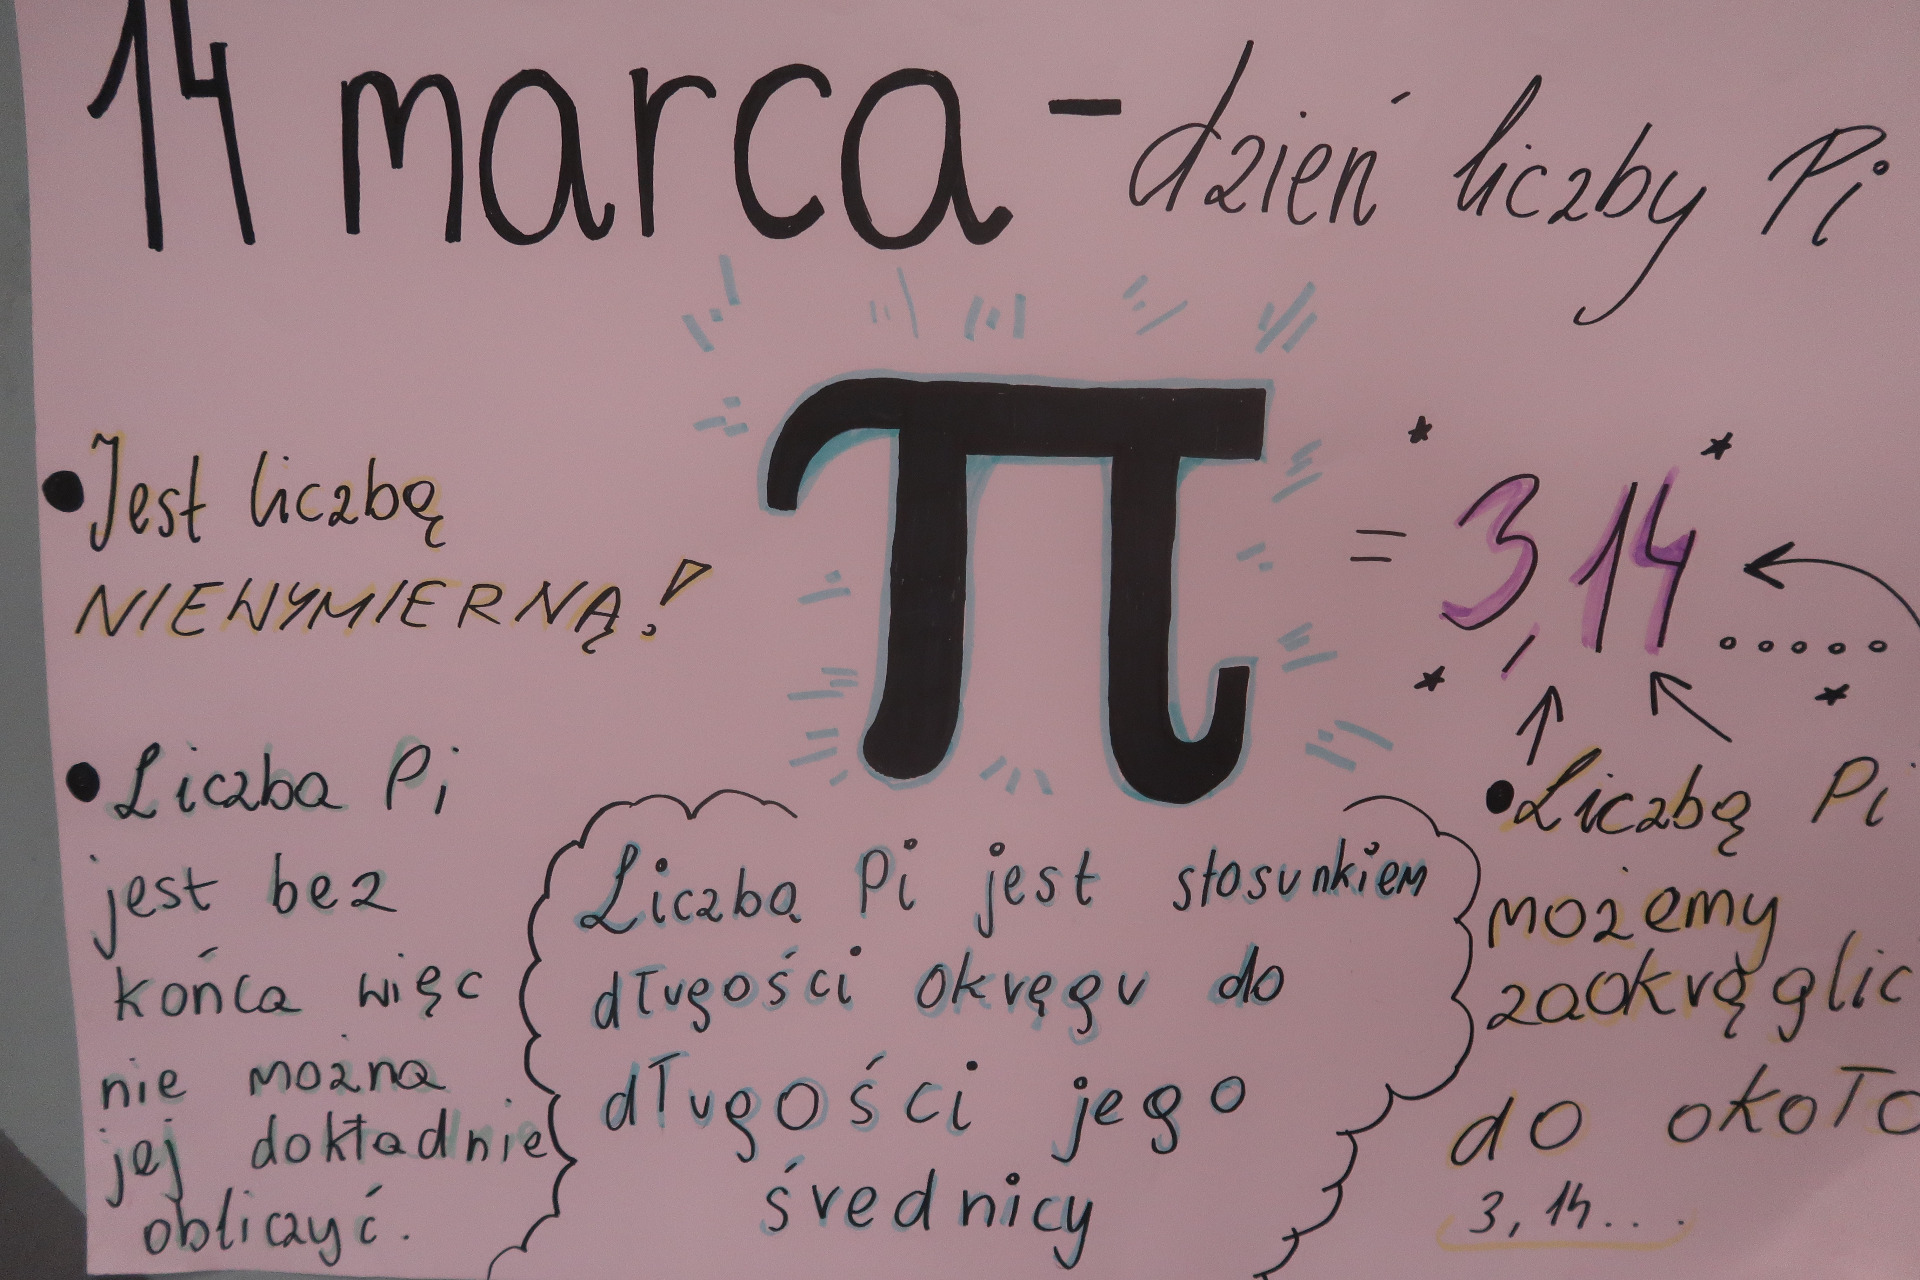 14 marca - dzień liczby Pi
• Jest liczbą
NIEWYMIERNĄ!
π = 3,14.....
• Liczba Pi
jest bez
końca więc
nie można
jej dokładnie
obliczyć.
Liczba Pi jest stosunkiem
długości okręgu do
długości jego
średnicy
• Liczbę Pi
możemy
zaokrąglic
do około
3,14...